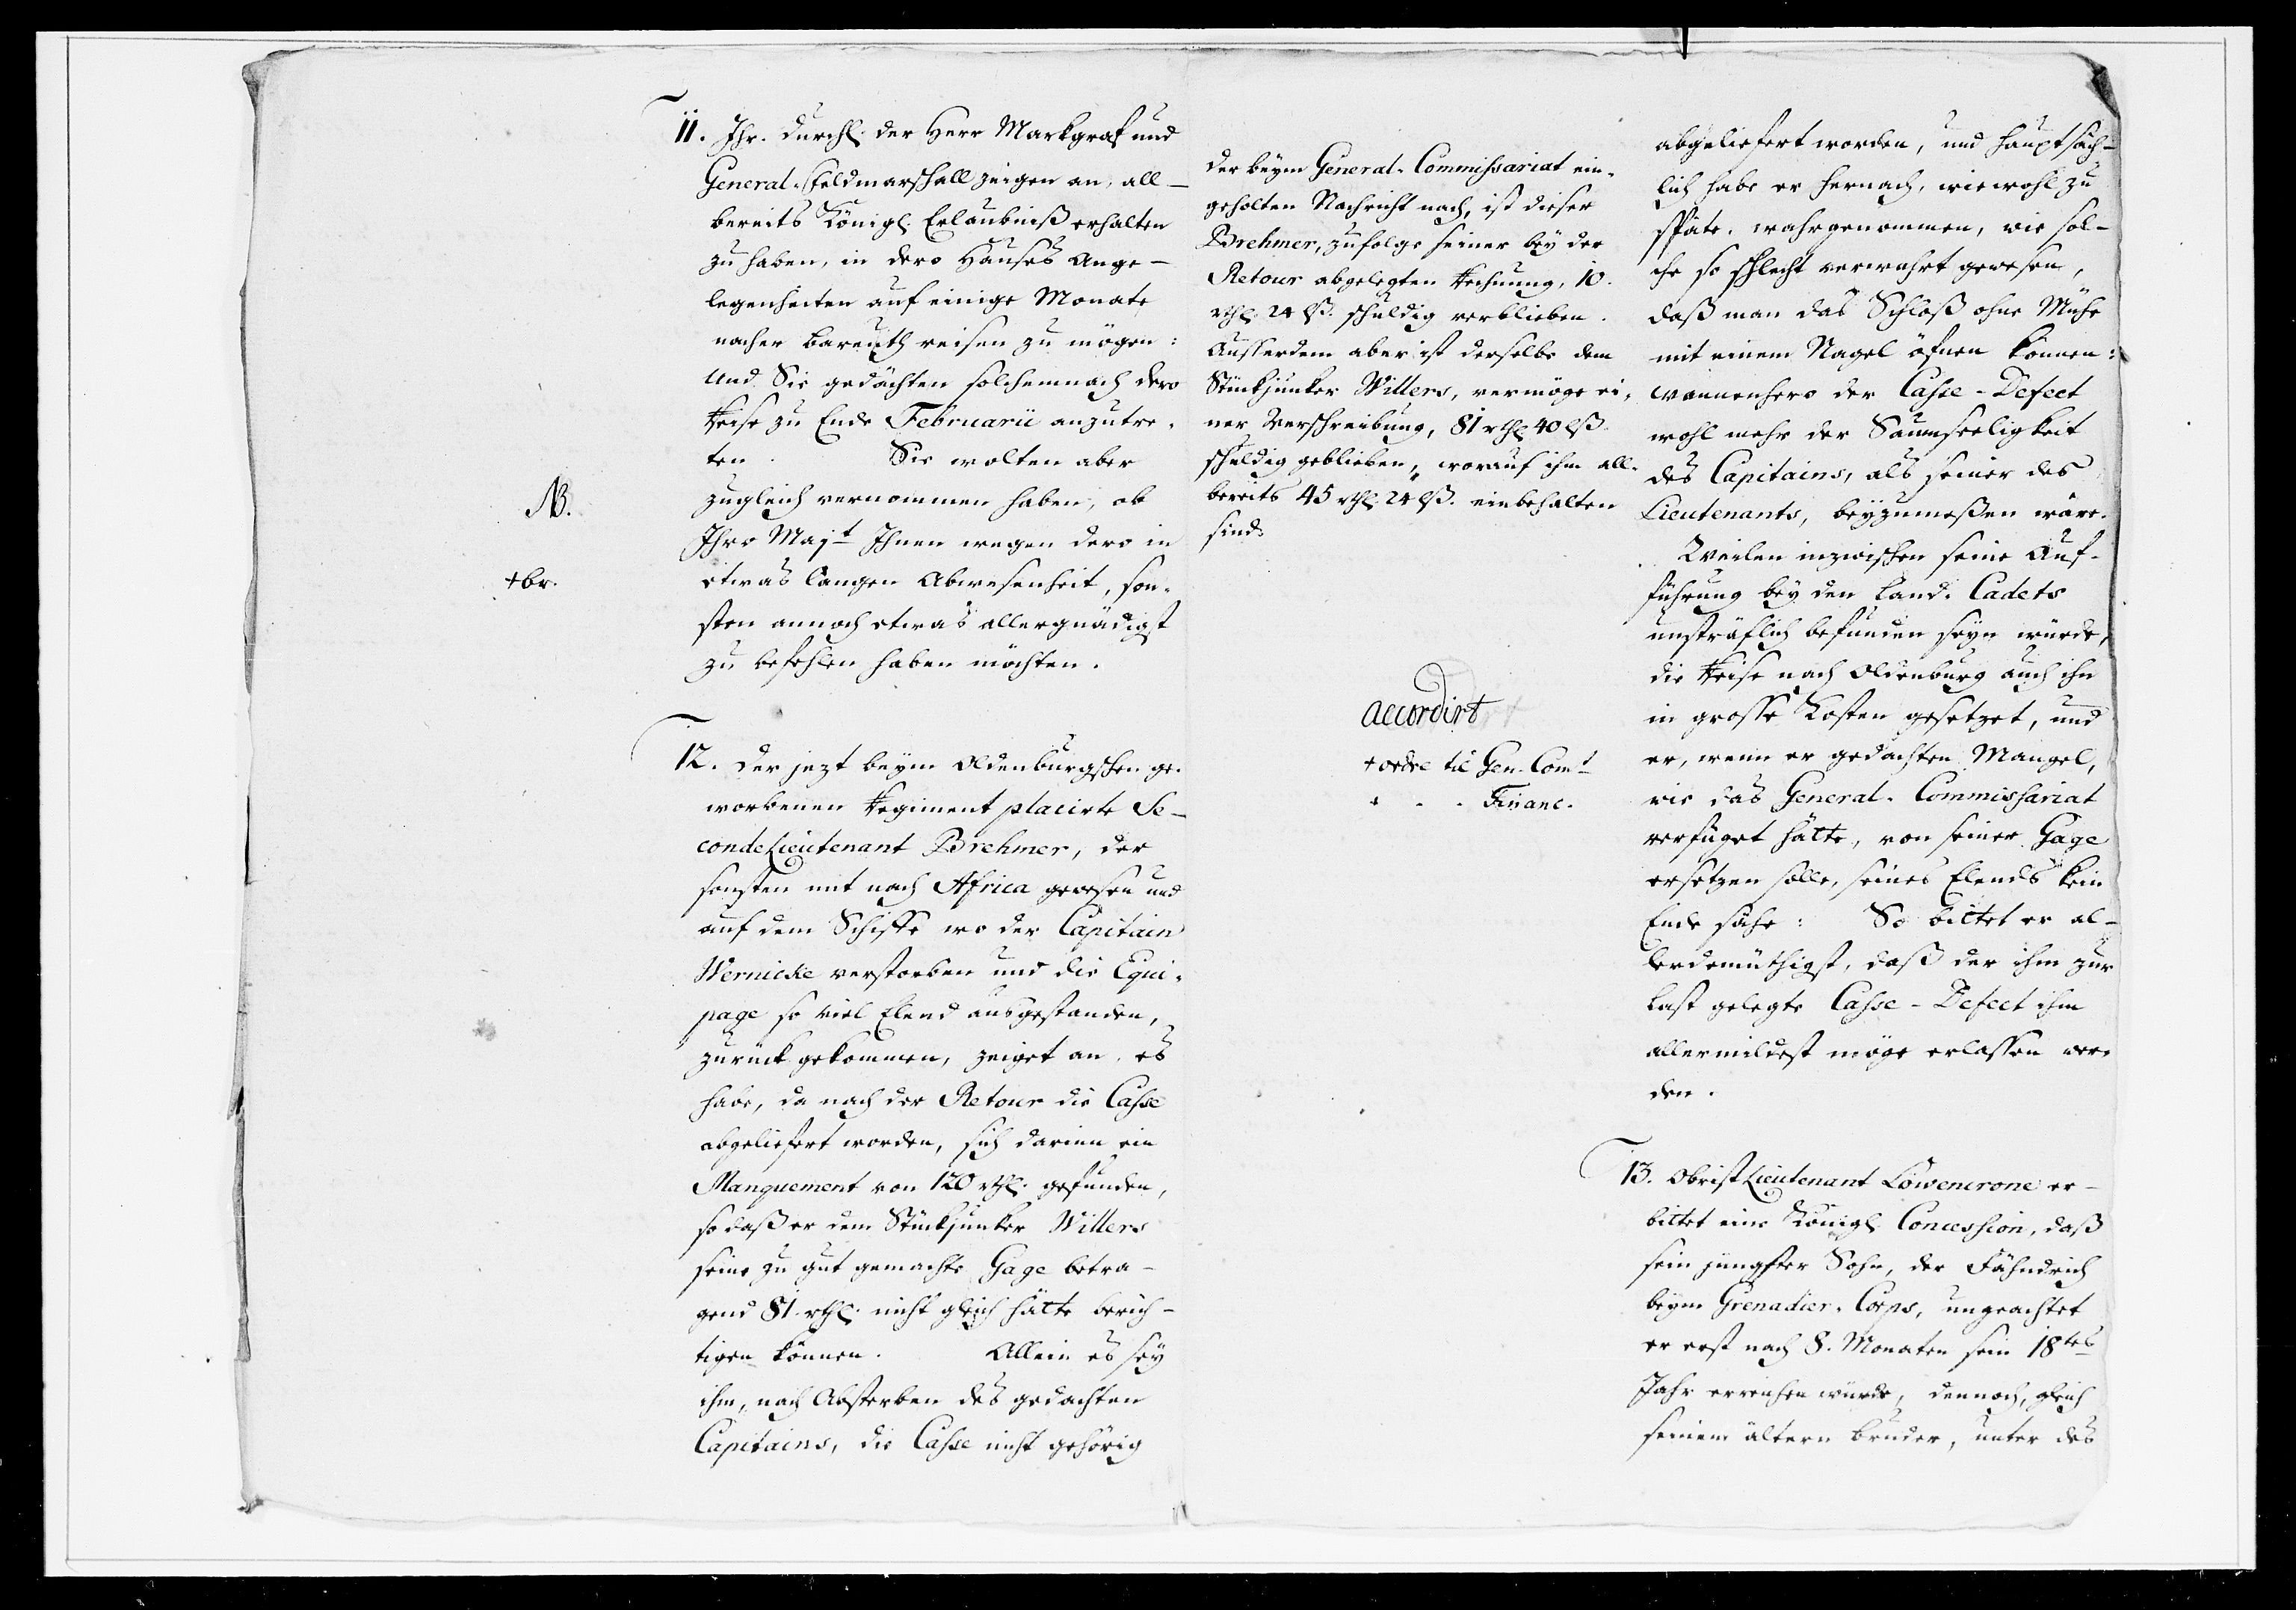 11. Ihr. Durchl. der Herr Markgraf und
General-Feldmarschall zeigen an, all-
bereits Königl. Erlaubniß erhalten
zu haben, in dero Hauses Ange-
legenheiten auf einige Monate
nacher Bareuth reisen zu mögen:
Und Sie gedächten solchemnach dero
Reise zu Ende Februarii anzutre-
ten. Sie wolten aber
NB.
zugleich vernommen haben, ob
Ihro Majt Ihnen wegen dero in
+br.
etwas langen Abwesenheit, son-
sten annoch etwas allergnädigst
zu befehlen haben möchten.
12. Der jezt beym Oldenburgschen ge-
worbenen Regiment placirte Se-
condeLieutenant Brehmer, der
sonsten mit nach Africa gewesen und
auf dem Schiffe wo der Capitain
Wernicke verstorben und die Equi-
page so viel Elend ausgestanden,
zurück gekommen, zeiget an, es
habe, da nach der Retour die Casse
abgeliefert worden, sich darinn ein
Manquement von 120 rthl. gefunden,
so daß er dem Stückjunker Willers
seine zu gut gemachte Gage betra-
gend 81. rthl. nicht gleich hätte berich-
tigen können. Allein es sey
ihm, nach Absterben des gedachten
Capitains, die Casse nicht gehörig
Der beym General-Commissariat ein-
geholten Nachricht nach, ist dieser
Brehmer, zufolge seiner bey der
Retour abgelegten Rechnung, 10.
rthl. 24 lß. schuldig verblieben.
Ausserdem aber ist derselbe dem
Stückjunker Willers, vermöge ei-
ner Verschreibung, 81 rthl. 40 lß
schuldig geblieben, worauf ihm all-
bereits 45 rthl. 24 lß. einbehalten
sind.
accordirt
+ordre til Gen-Comt
- - - Financ.
abgeliefert worden, und hauptsäch-
lich habe er hernach, wiewohl zu
späte, wahrgenommen, wie sol-
che so schlecht verwahrt gewesen,
daß man das Schloß ohne Mühe
mit einem Nagel öfnen können:
wannenhero der Casse-Defect
wohl mehr der Saumseeligkeit
des Capitains, als seiner des
Lieutenants, beyzumeßen wäre.
Weilen inzwischen seine Auf-
führung bey den Land-Cadets
unsträflich befunden seyn würde,
die Reise nach Oldenburg auch ihn
in grosse Kosten gesetzet, und
er, wenn er gedachten Mangel,
wie das General-Commissariat
verfüget hätte, von seiner Gage
ersetzen solle, seines Elends kein
Ende sähe: So bittet er al-
lerdemüthigst, daß der ihm zur
Last gelegte Casse-Defect ihm
allermildest möge erlassen wer-
den.
13. ObristLieutenant Löwencrone er-
bittet eine Königl. Concession, daß
sein jüngster Sohn, der Fähndrich
beym Grenadier-Corps, ungeachtet
er erst nach 8. Monaten sein 18tes
Jahr erreichen würde, dennoch, gleich
seinem ältern Bruder, unter des